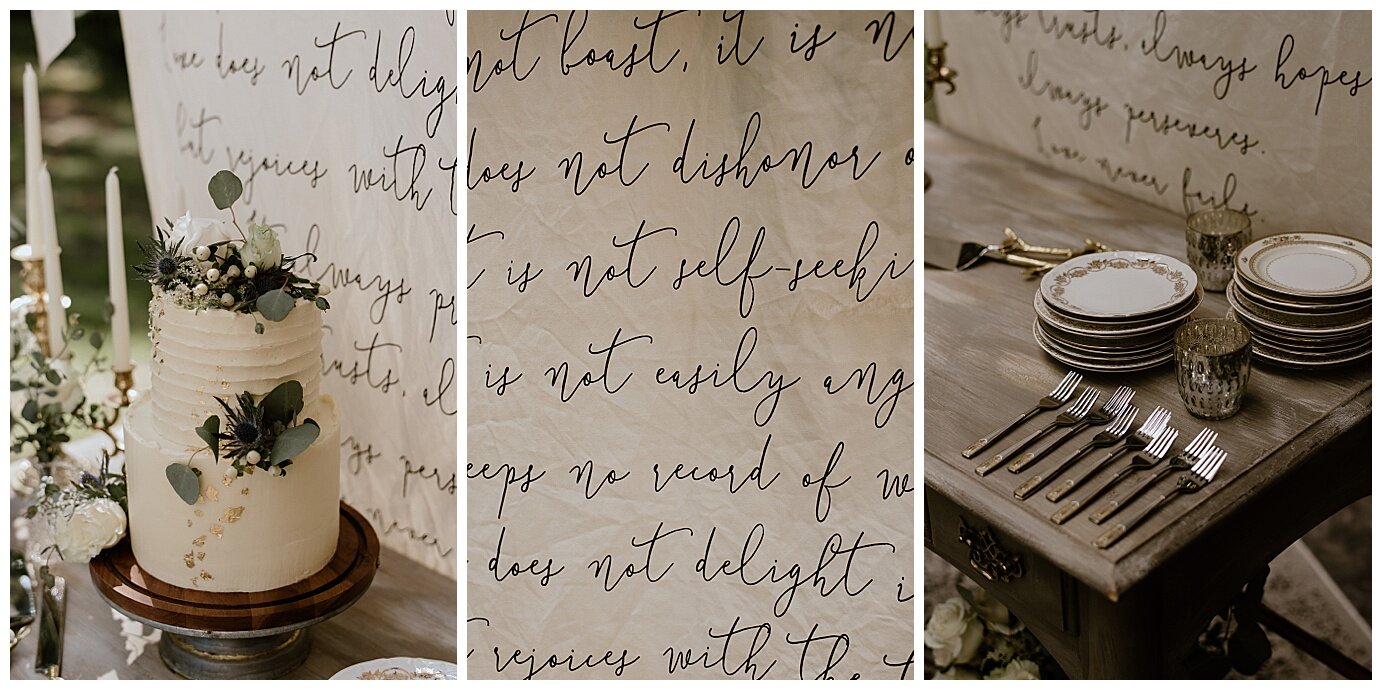 Love does not delig
but rejoices with t
always pr
trusts, al
ys perse
never
not boast, it is n
does not dishonor o
t is not self-seeki
is not easily ang
eeps no record of w
does not delight i
rejoices with the t
ays trusts, always hopes
always perseveres.
Love never fails.